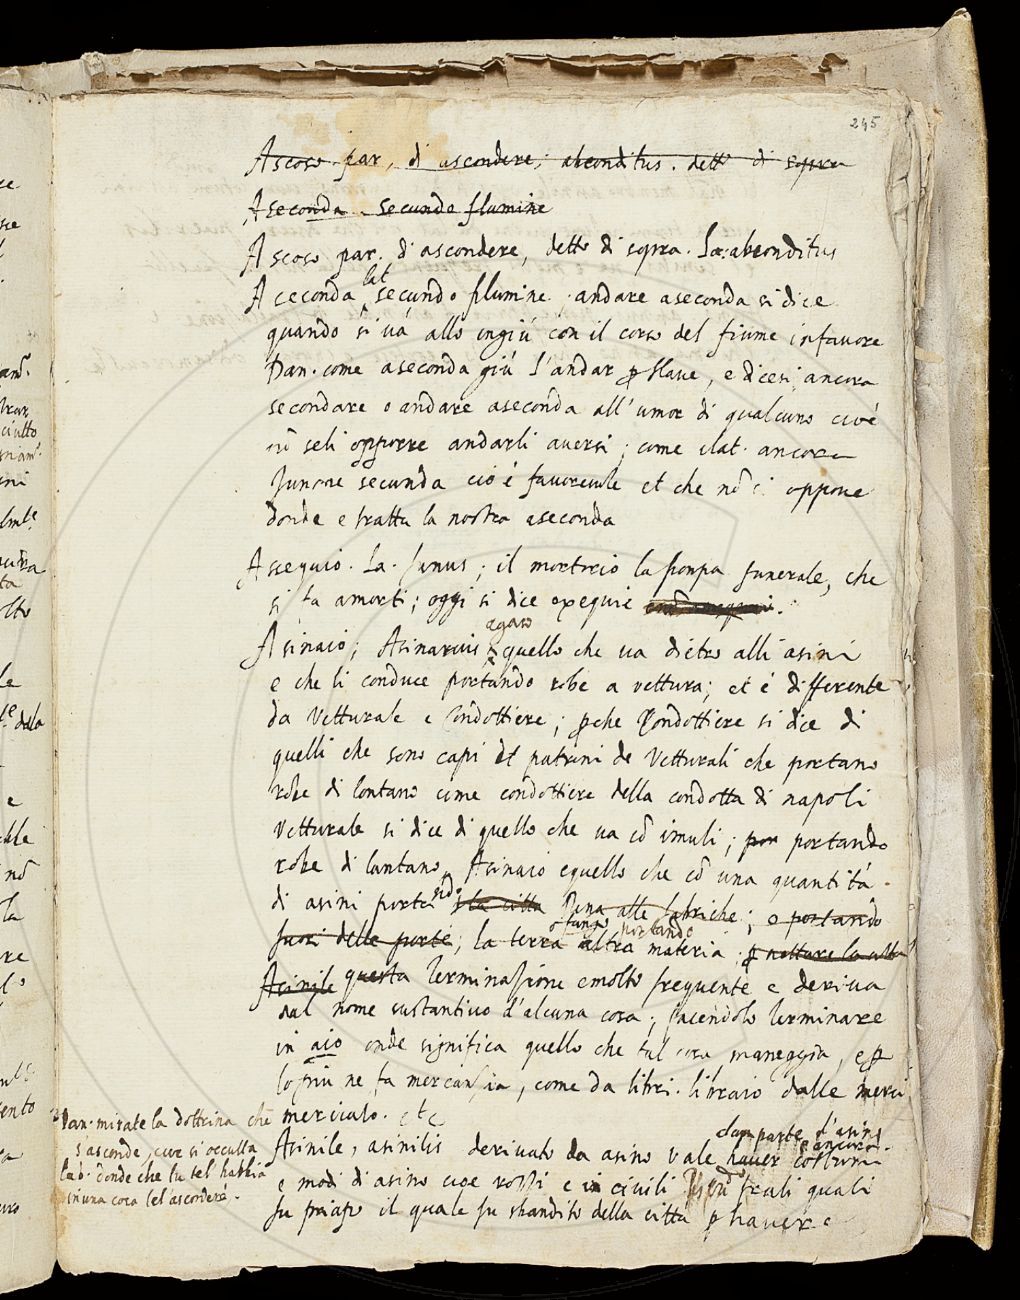 245
Ascoso par. di ascondere; absconditus. detto di sopra
Aseconda secundo flumine
Ascoso par. di ascondere, detto di sopra. La: absconditus
Aceconda lat secundo flumine. andare aseconda si dice
quando si uá allo ingiú con il corso del fiume infauore
Dan. come aseconda giú l'andar p Naue, e dicesi ancora
secondare o andare aseconda all'umor di qualcuno cioé
nō seli opporre andarli auersi; come ilat. ancora
Junone secunda ció é fauoreuole et che nō si oppone
donde e tratta la nostra aseconda
Assequio. La. funus; il mortorio la pompa funerale, che
si fa amorti; oggi si dice exequie
Asinaio; Asinarius agaso quello che ua dietro alli asini
e che li conduce portando robe a uettura; et é differente
da Vetturale e Condottiere; pche Condottiere si dice di
quelli che sono capi et patroni de Vetturali che portano
robe di lontano come condottiere della condotta di napoli
Vetturale si dice di quello che ua cō imuli; por portando
robe di lontano. Asinaio equello che cō una quantitá
di asini porta p la citta rena alle fabriche; e portando
fuori delle porte; la terra o fango altra materia portando p nettare la citta
Asinile questa Terminazione emolto frequente e deriua
dal nome sustantiuo d'alcuna cosa; facendolo terminare
in aio onde significa quello che tal cosa maneggia, e p
lo piu ne fa mercanzia, come da libri. libraio dalle merci
merciaio. etc
Asinile, asinilis deriuato da asino vale hauer costumi
d'asino ancora
e modi di asino cioe rozzi e in ciuili quali
fu priapo il quale fu sbandito della citta p hauer e
Dan. mirate la dottrina che
s'asconde, cioe si occulta
donde che tu tel habbia
in una cosa tel asconderé.